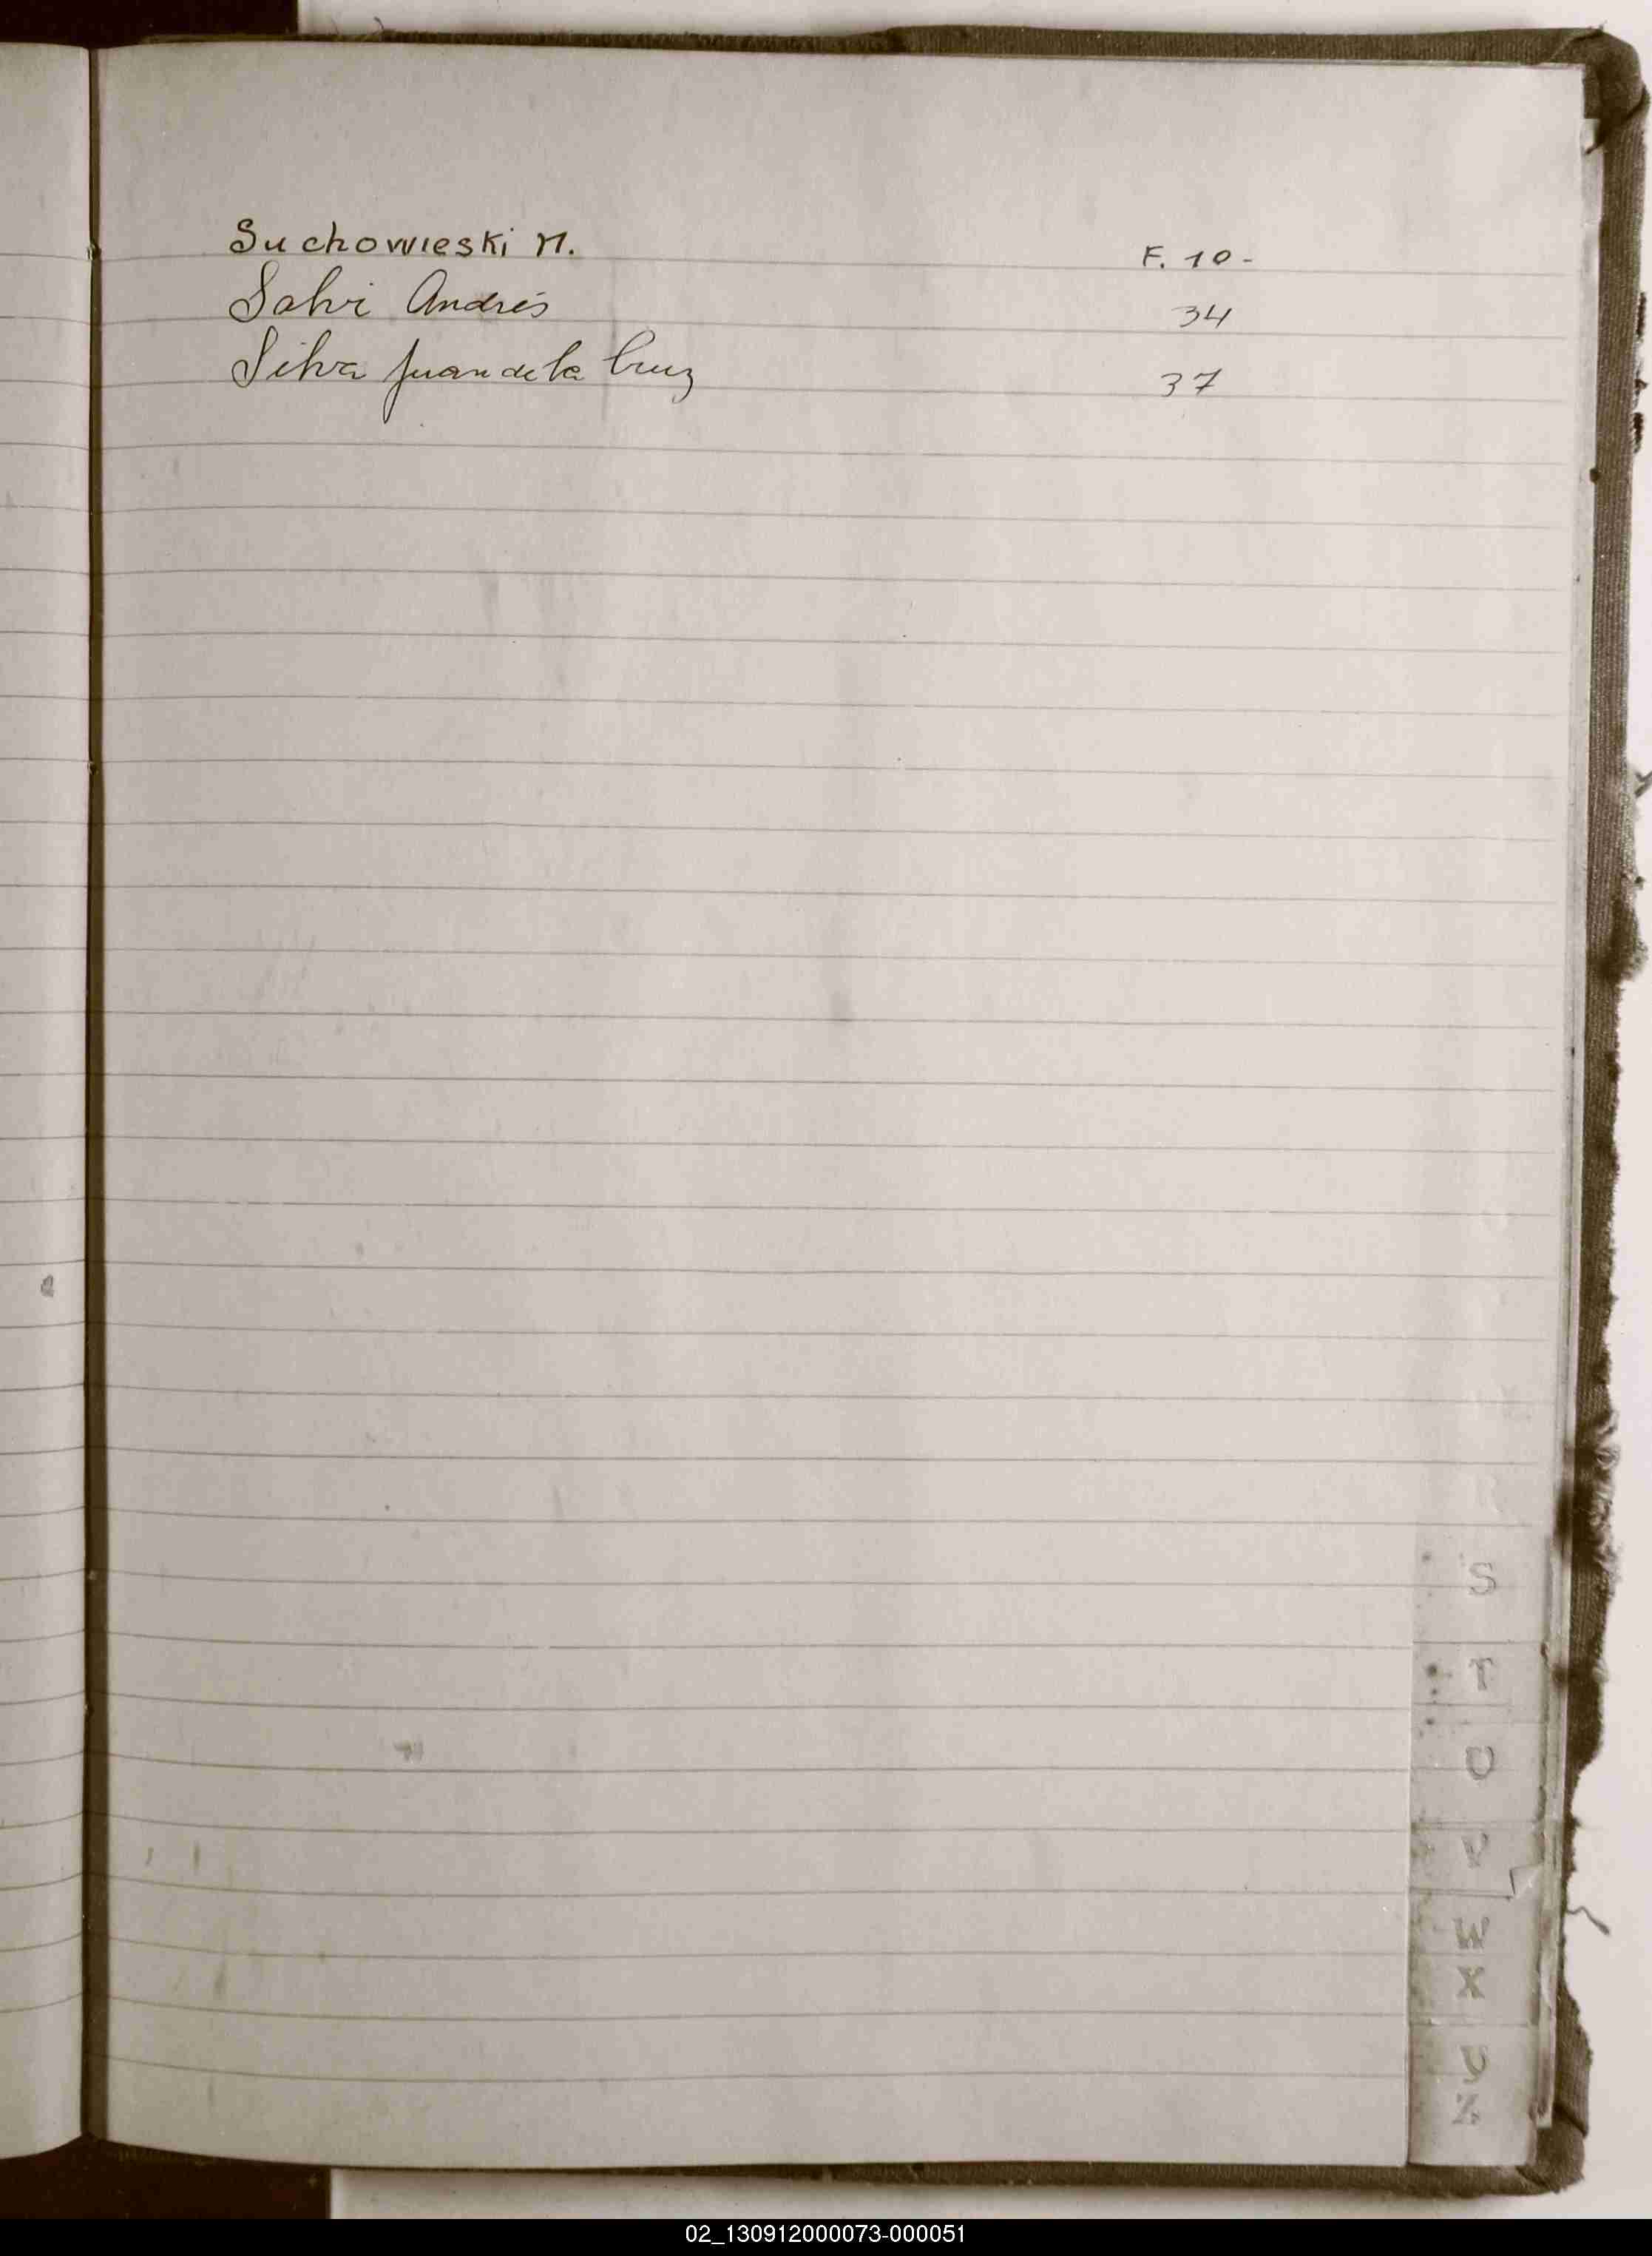 Suchowieski M. F. 10-
Salvi Andrés 34
Silva Juan de la Cruz 37
S
T
U
V
W
X
Y
Z
02_130912000073-000051